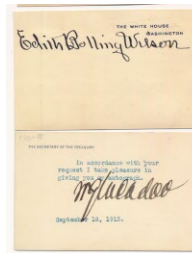 THE WHITE HOUSE
WASHINGTON
Edith Bolling Wilson
THE SECRETARY OF THE TREASURY
In accordance with your
request I take pleasure in
giving you my autograph.
W G McAdoo
September 18, 1915.